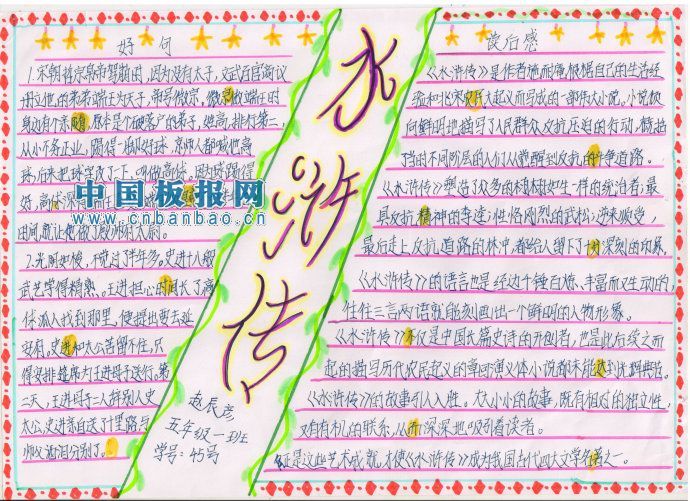 好句
1.宋朝哲宗皇帝驾崩后,因为没有太子,文武百官商议
册立他的弟弟端王为天子,帝号徽宗,徽宗做端王时
身边有个亲随,原本是个破落户的弟子,姓高,排行第二,
从小不务正业,踢得一脚好球,京师人都喊他高
中国板报网
www.cnbanbao.cn
间,就让他做了殿帅府太尉。
2.光阴如梭,不觉过了半年多。史进十八般
武艺学得精熟。王进担心时间长了高
俅派人找到那里,便提出要去延
安府,史进和太公苦留不住,只
得安排筵席为王进母子送行。第
二天,王进母子二人辞别人史
太公,史进亲自送了十里路与
师父洒泪分别了。
水浒传
赵辰彦
五年级一班
学号:45号
读后感
《水浒传》是作者施耐庵根据自己的生活经
验和北宋农民大起义而写成的一部伟大小说,小说倾
向鲜明地描写了人民群众反抗压迫的行动,概括
了当时不同阶层的人们从觉醒到反抗的斗争道路。
《水浒传》塑造了众多的栩栩如生一样的统治者,最
具反抗精神的李逵;性格刚烈的武松;逆来顺受,
最后走上反抗道路的林冲,都给人留下了十分深刻的印象。
《水浒传》的语言也是经过千锤百炼、丰富而又生动的,
往往三言两语就能刻画出一个鲜明的人物形象。
《水浒传》不仅是中国长篇史诗的开创者,也是此后续之而
起的描写历代农民起义的章回演义体小说都未能达到尤料典范。
《水浒传》的故事引人入胜。大大小小的故事,既有相对的独立性,
又有有机的联系,从而深深地吸引着读者。
正是这些艺术成就,才使《水浒传》成为我国古代四大文学名著之一。